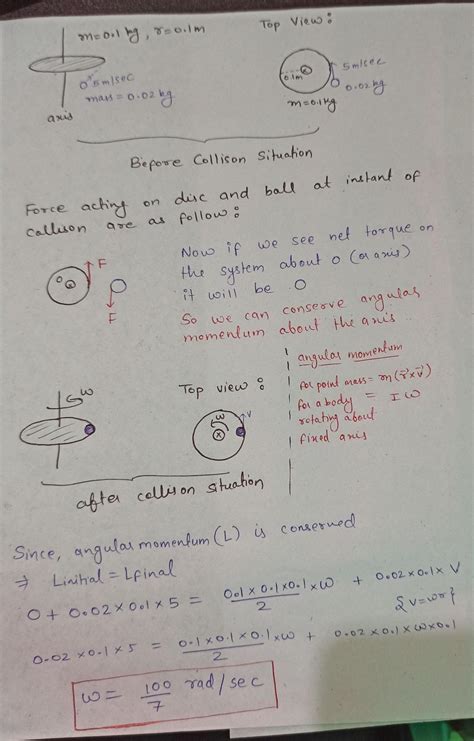 m=0.1 kg, r=0.1m
Top View:
5m/sec
mass=0.02kg
axis
0.1m
5m/sec
0.02kg
m=0.1kg
Before Collison Situation
Force acting on disc and ball at instant of
collison are as follow:
F
O
F
Now if we see net torque on
the system about O (or axis)
it will be 0
So we can conserve angular
momentum about the axis.
angular momentum
for point mass = m(r⃗×v⃗)
for a body = Iω
rotating about
fixed axis
ω
Top view:
ω
v
after collison situation
Since, angular momentum (L) is conserved
⇒ Linitial = Lfinal
0 + 0.02×0.1×5 = 0.1×0.1×0.1/2 ×ω + 0.02×0.1×V
{v=ωr}
0.02×0.1×5 = 0.1×0.1×0.1/2 ×ω + 0.02×0.1×ω×0.1
ω = 100/7 rad/sec